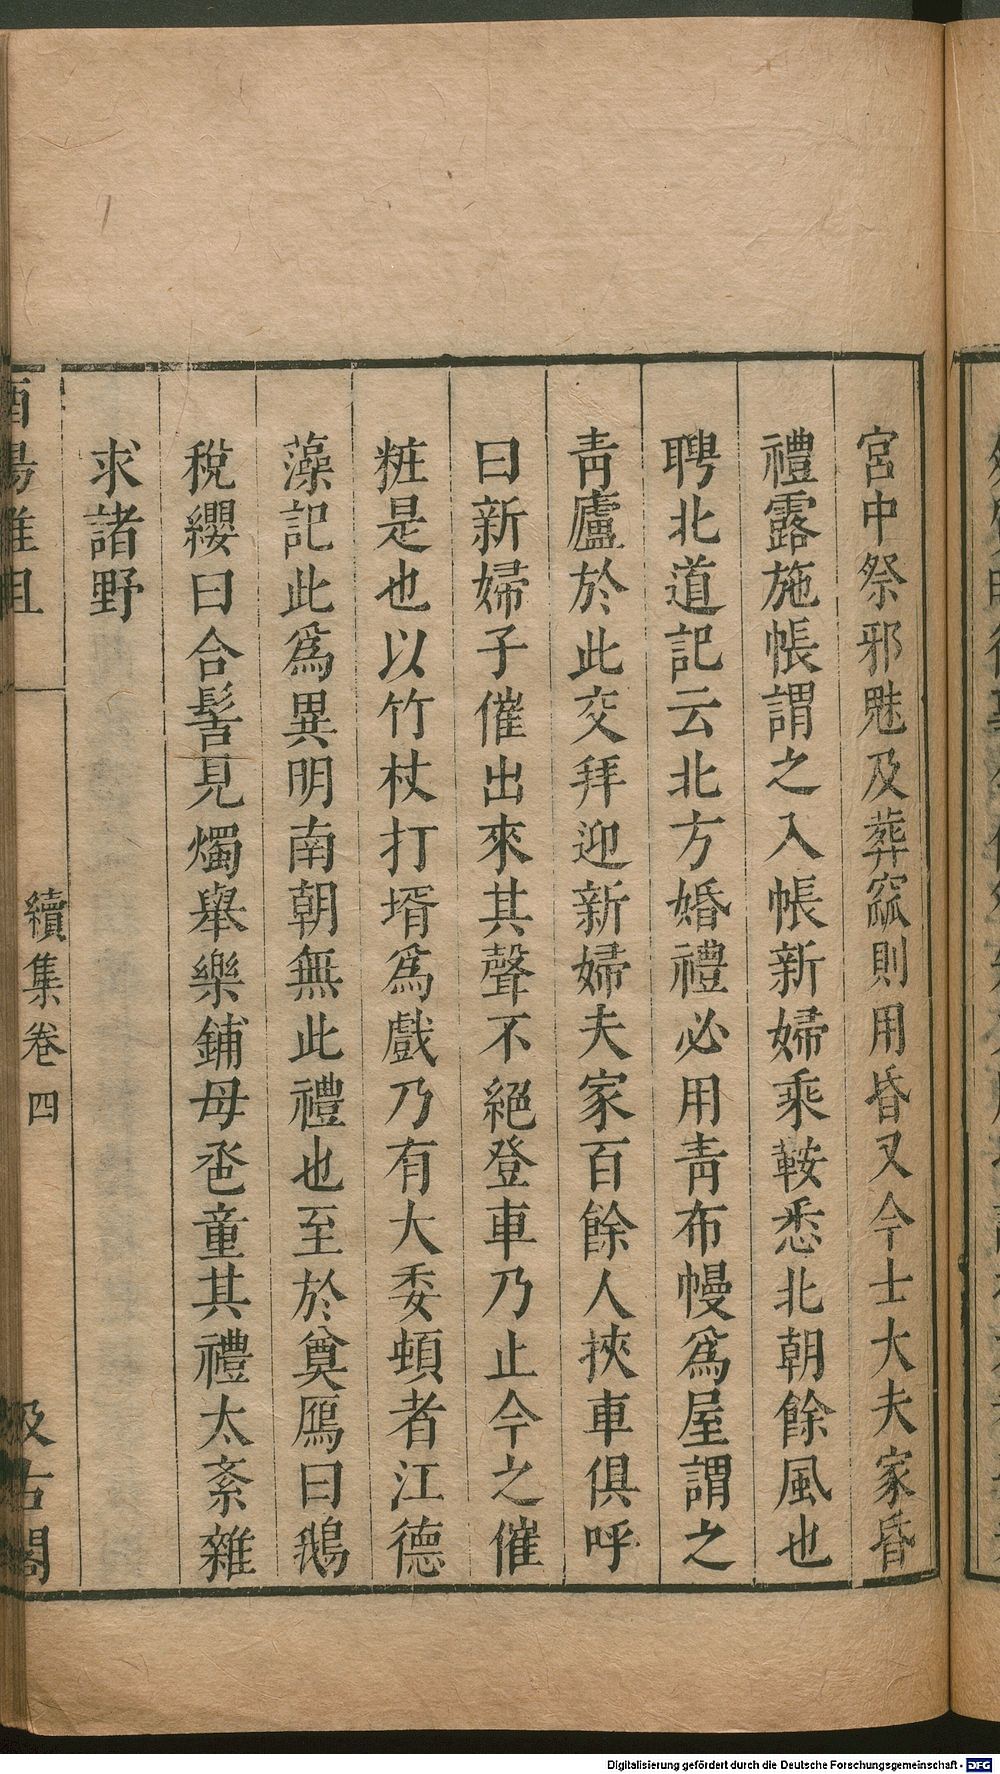 宮中祭邪魅及葬窆則用昏又今士大夫家昏
禮露施帳謂之入帳新婦乘鞍悉北朝餘風也
聘北道記云北方婚禮必用靑布幔爲屋謂之
靑廬於此交拜迎新婦夫家百餘人挾車俱呼
曰新婦子催出來其聲不絕登車乃止今之催
粧是也以竹杖打壻爲戲乃有大委頓者江德
藻記此爲異明南朝無此禮也至於奠鴈曰鵝
稅纓曰合髻見燭舉樂鋪母卺童其禮太紊雜
求諸野
酉陽雜俎
續集卷四
汲古閣
Digitalisierung gefördert durch die Deutsche Forschungsgemeinschaft - DFG